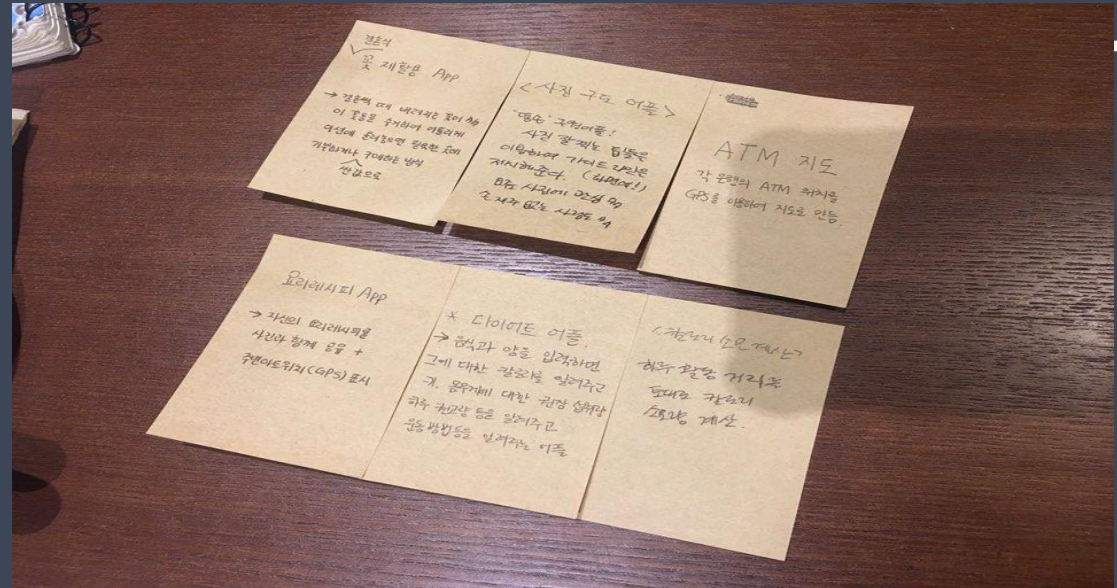 결혼식
꽃 재활용 App
→ 결혼식 때 버려지는 꽃이 많음
이 꽃들을 수거하여 어플에
올려놓으면 필요한 곳에
기부하거나 구매하는 방식
싼값으로
<사진 구도 어플>
"똥손" 구원어플!
사진 잘 찍는 팁들을
이용하여 가이드라인을
제시해준다. (화면에!)
요즘 사진에 관심 ↑
손재주 없는 사람도 ↑
ATM 지도
각 은행의 ATM 위치를
GPS를 이용하여 지도로 만듬.
요리레시피 App
→ 자신의 요리레시피를
사진과 함께 공유 +
주변마트위치(GPS) 표시
* 다이어트 어플.
→ 음식과 양을 입력하면
그에 대한 칼로리를 알려주고
키, 몸무게에 대한 권장 섭취량
하루 권고량 등을 알려주고
운동방법등을 알려주는 어플
<칼로리 소모 계산>
하루 활동 거리를
토대로 칼로리
소모량 계산.